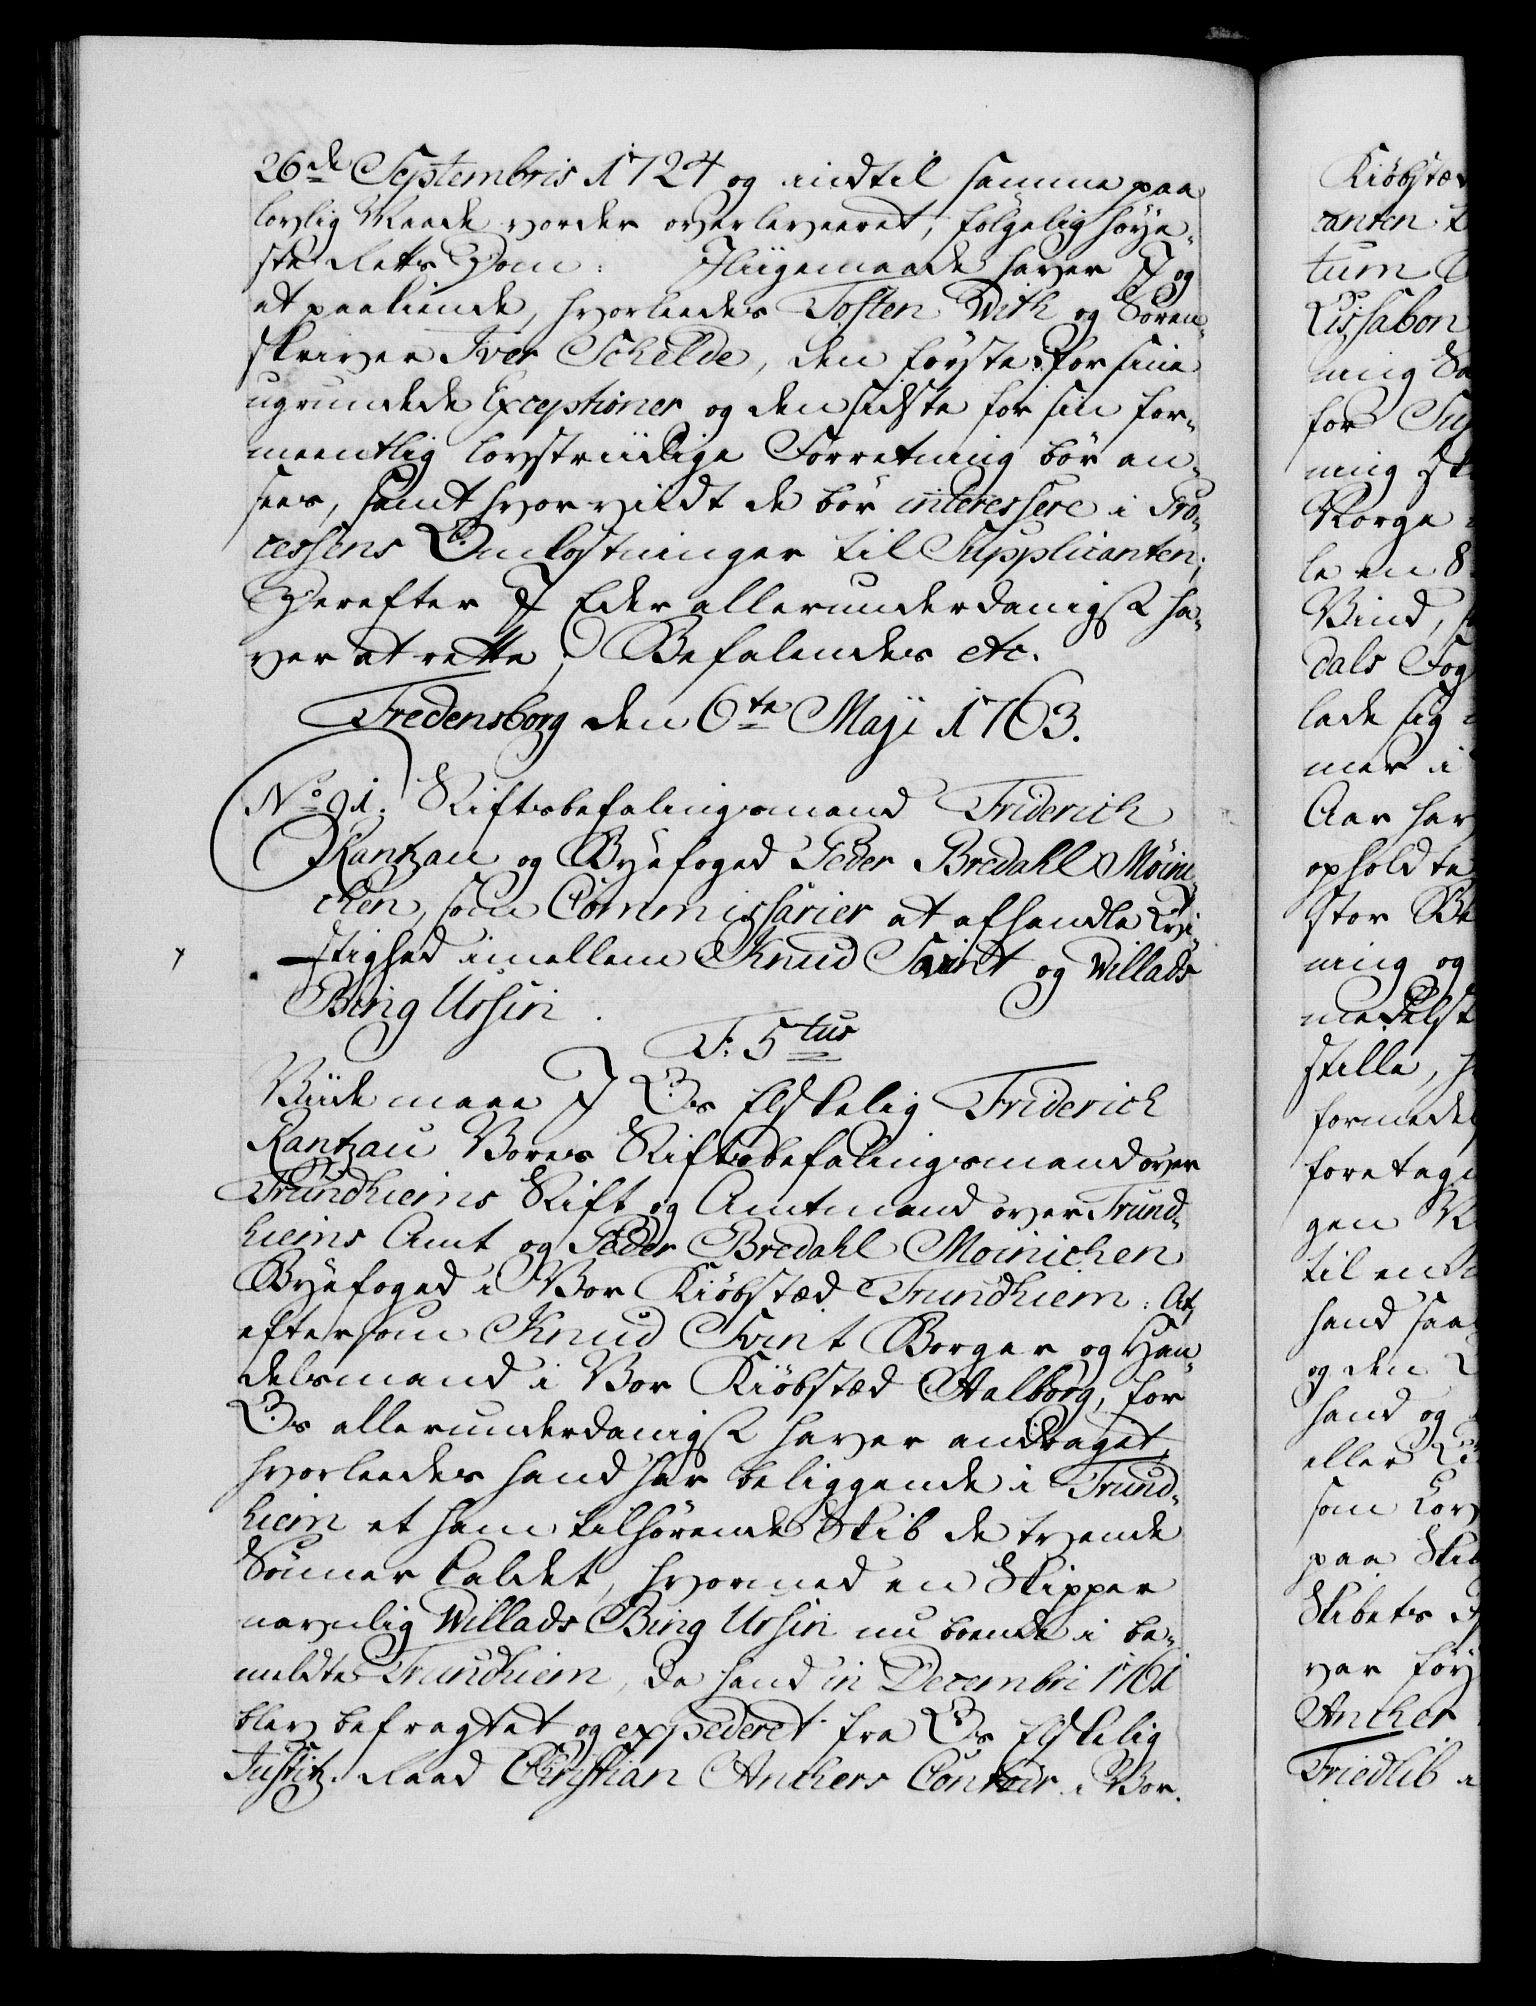 26de Septembris 1724 og indtil samme paa
lovlig Maade vorder overleveeret, følgelig høye-
ste Retts Dom: Jligemaade haver I og
at paakiende, hvorleedes Tosten With og Soren-
skriver Iver Schelde, den første for sine
ugrundede Exceptioner og den sidste for sin for-
meentlig lovstriidige Forretning bør an-
sees, samt hvorvidt de bør interessere i Pro-
cessens Omkostninger til Supplicanten;
Derefter I Eder allerunderdanigst ha-
ver at rette; Befalendes etc.
Fredensborg den 6te Maji 1763.
No 91. Stiftsbefalingsmand Friderich
Rantzau og Byefoged Peder Bredahl Møini-
chen, som Commissarier at afhandle Tvi-
stighed imellem Knud Svint og Willads
Bing Ursin.
F: 5tus
Viide maae I Os Elskelig Friderich
Rantzau Vores Stiftsbefalingsmand over
Trundhiems Stift og Amtmand over Trund-
hiems Amt og Peder Bredahl Moinichen
Byefoged i Vor Kiøbstæd Trundhiem: At,
eftersom Knud Svint Borger og Han-
delsmand i Vor Kiøbstæd Aalborg, for
Os allerunderdanigst haver andraget,
hvorleedes hand har beliggende i Trund-
hiem et ham tilhørende Skib de tvende
Sønner kaldet, hvormed en Skipper
navnlig Willads Bing Ursin nu boende i be-
meldte Trundhiem, da hand in Decembri 1761
blev befragtet og expederet fra Os Elskelig
Justitz-Raad Christian Anchers Contoir i Vor
Kiøbstæd
canten
tum
Lissabon
ning
for
ning
Norge
le en 8
Vind,
dals Fog
lade sig
mer i
Aar har
opholdte
stor
ning og
medelst
stille,
formedel
foretag
gen
til en
hand saa
og den
hand og
eller
som
paa Skib
Skibets
var
Ancher
Friedlib